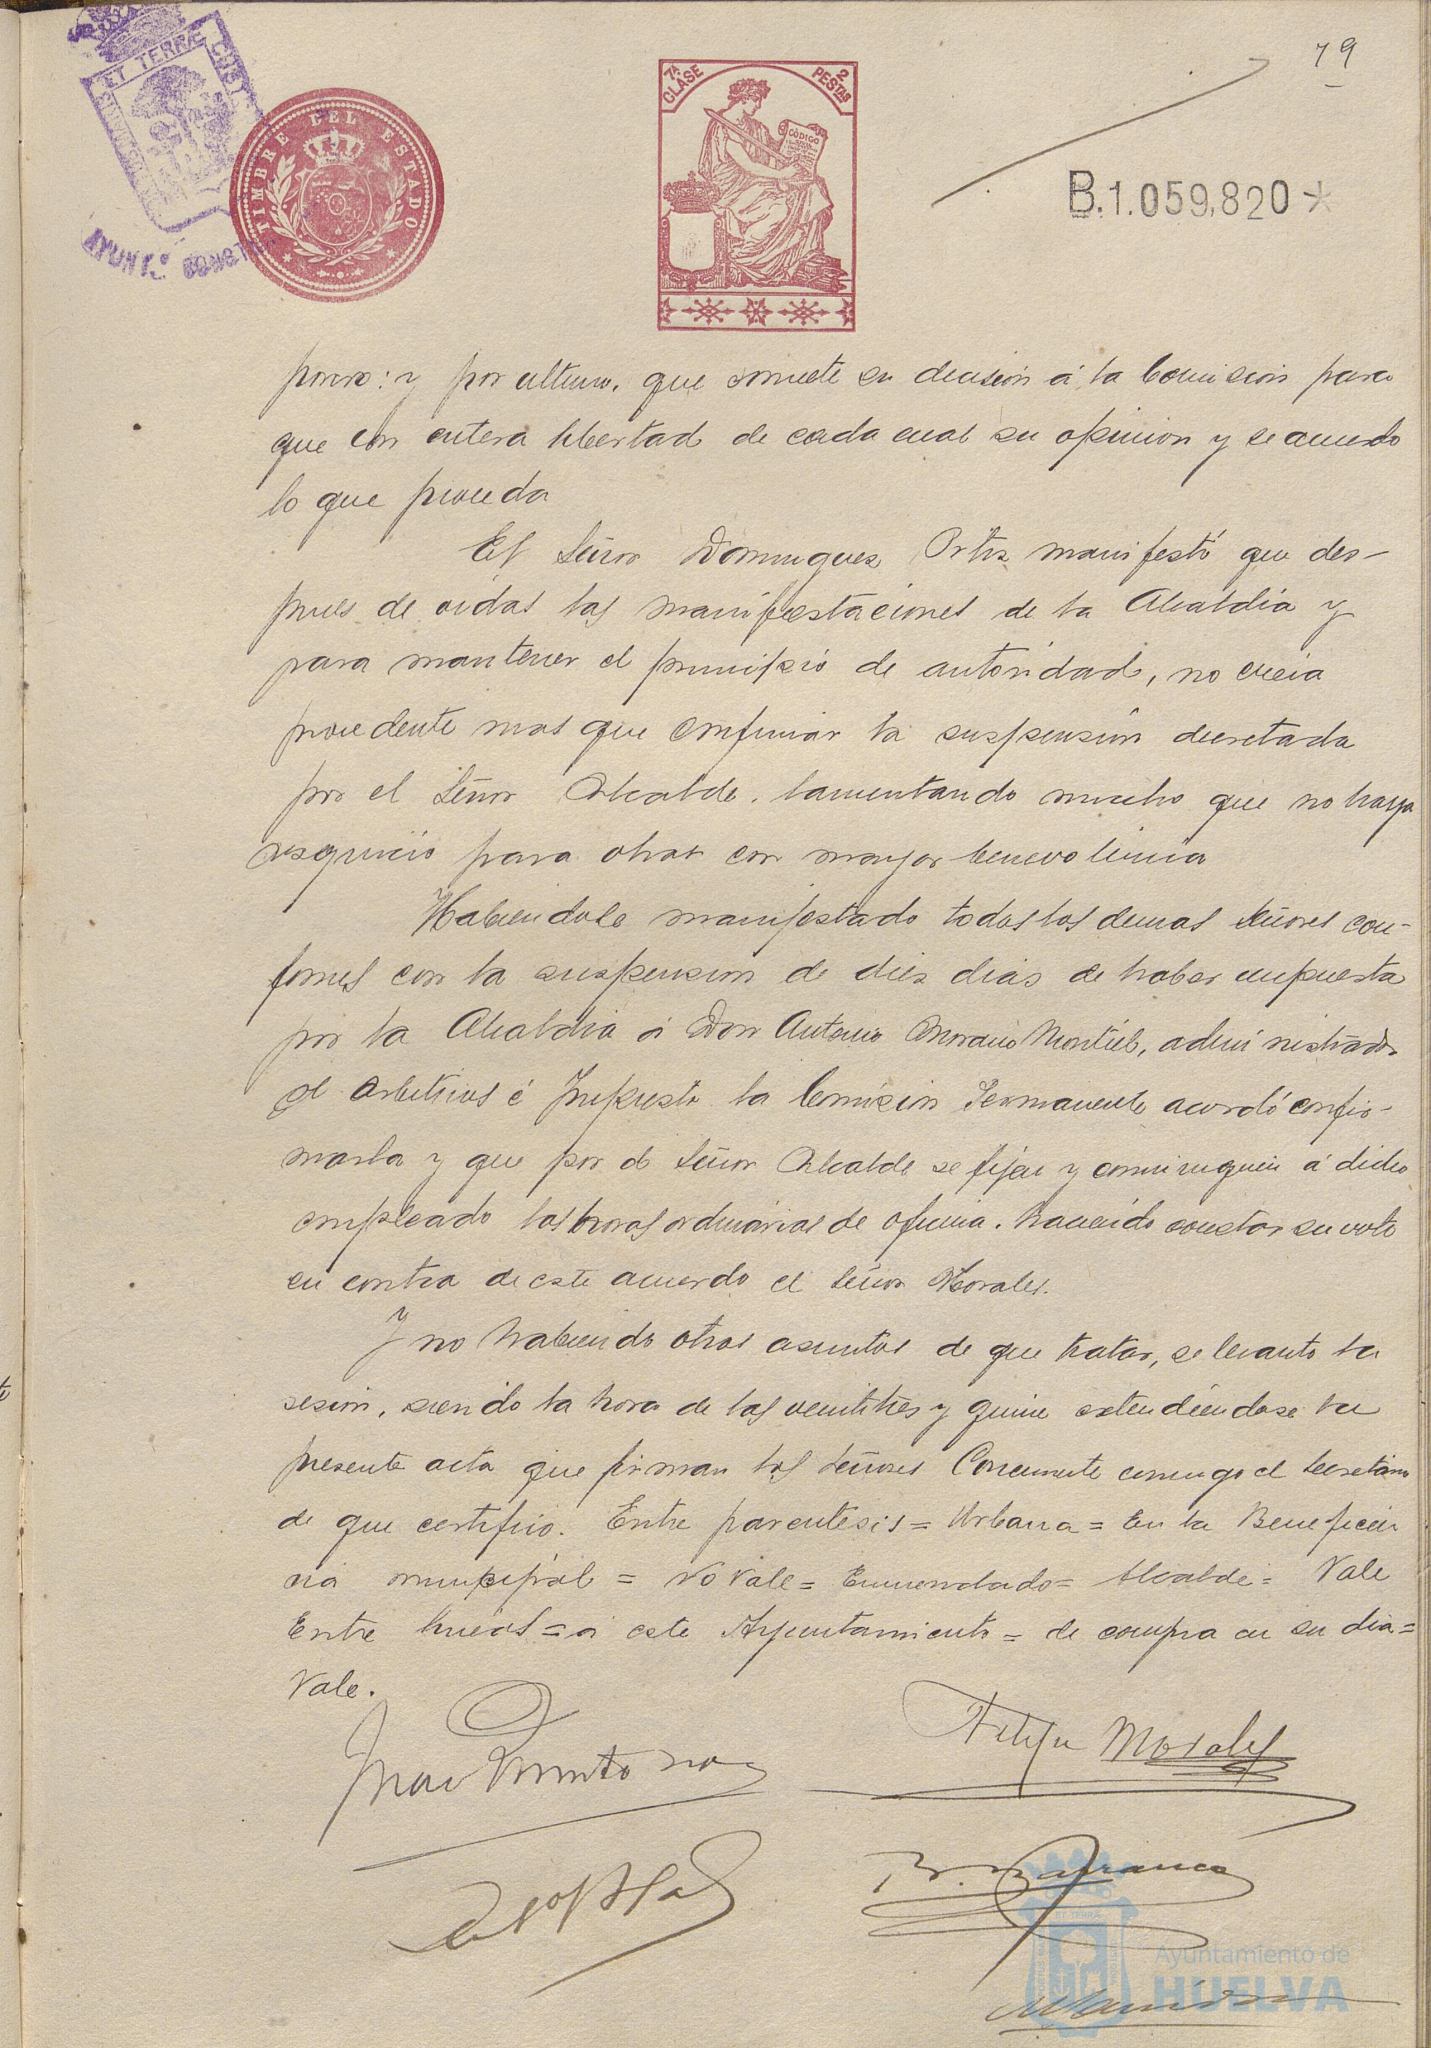 79
ET TERRÆ
AYUNT.º CONST
TIMBRE DEL ESTADO
7ª CLASE
2 PESTAS
CÓDIGO
B.1.059,820*
y por ultimo, que somete su decisión á la Comision para
que con entera libertad de cada cual su opinion y se acuerde
lo que proceda
El Señor Dominguez Ortiz manifestó que des-
pues de oidas las manifestaciones de la Alcaldia y
para mantener el principio de autoridad, no creia
procedente mas que confirmar la suspensión decretada
por el Señor Alcalde, lamentando mucho que no haya
resquicio para obrar con mayor benevolencia
Habiendole manifestado todos los demas señores con-
formes con la suspension de diez dias de haber impuesta
por la Alcaldia á Don Antonio Morano Montiel, administrador
de Arbitrios é Impuesto la Comision Permanente acordó confir-
marla y que por el Señor Alcalde se fijen y comuniquen á dicho
empleado las horas ordinarias de oficina, haciendo constar su voto
en contra de este acuerdo el Señor Morales.
Y no habiendo otros asuntos de que tratar, se levanto la
sesion, siendo la hora de las veintitres y quince extendiéndose la
presente acta que firman los señores Concurrente conmigo el Secretario
de que certifico. Entre parentesis = Urbana = En la Beneficen
cia municipal = No vale = Enmendado = Alcalde = Vale
Entre lineas = á este Ayuntamiento = de compra en su dia =
Vale.
Felipe Morales
Ayuntamiento de
HUELVA